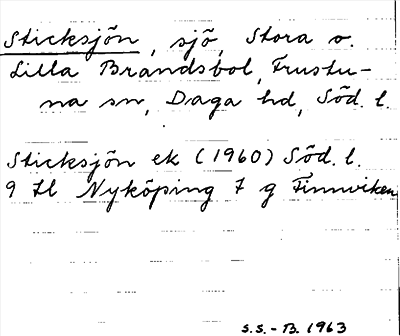 Sticksjön, sjö, Stora o.
Lilla Brandsbol, Frustu-
na sn, Daga hd, Söd. l.
Sticksjön ek (1960) Söd. l.
9 Nyköping 7 g Finnviken
S.S.-B. 1963